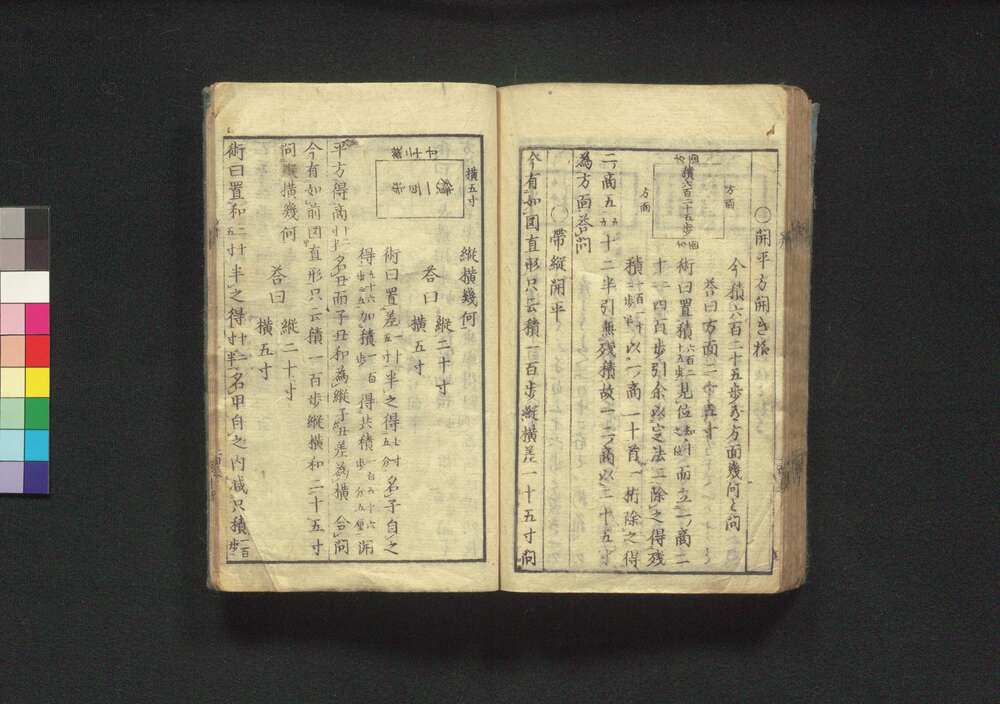 〇開平方開き様
今積六百二十五歩あり方面幾何と問
答曰方面二十五寸
方面
積六百二十五歩
方面
方面
方面
術曰置積六百二十五歩見位
面立一商二
十 四百歩引余以定法二除之得残
積 以一商一十
除之得
二商五 十二半引無残積故一二商以二十五寸
為方面答問
〇帯縦開平
今有如図直形只云積一百歩縦横差一十五寸問
縦横幾何
横五寸
答曰 縦二十寸
横五寸
術曰置差一十五寸半之得七寸五分名子自之
得五十六歩二五加積一百歩得共積一百五十六歩二分五厘
平方得高十二寸半名丑而子丑和為縦子丑差為横合問
今有如前図直形只云積一百歩縦横和二十五寸
問縦横幾何
答曰 縦二十寸
横五寸
術曰置和二十五寸半之得十二寸半名甲自之内減只積一百歩